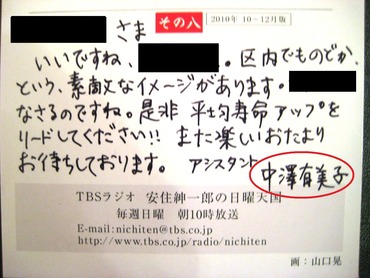 さま その八 2010年 10－12月版
いいですね、 。区内でものどか、
という、素敵なイメージがあります。
なさるのですね。是非 平均寿命アップを
リードしてください!! また楽しいおたより
お待ちしております。 アシスタント 中澤有美子
TBSラジオ 安住紳一郎の日曜天国
毎週日曜 朝10時放送
E-mail:nichiten@tbs.co.jp
http://www.tbs.co.jp/radio/nichiten
画：山口晃